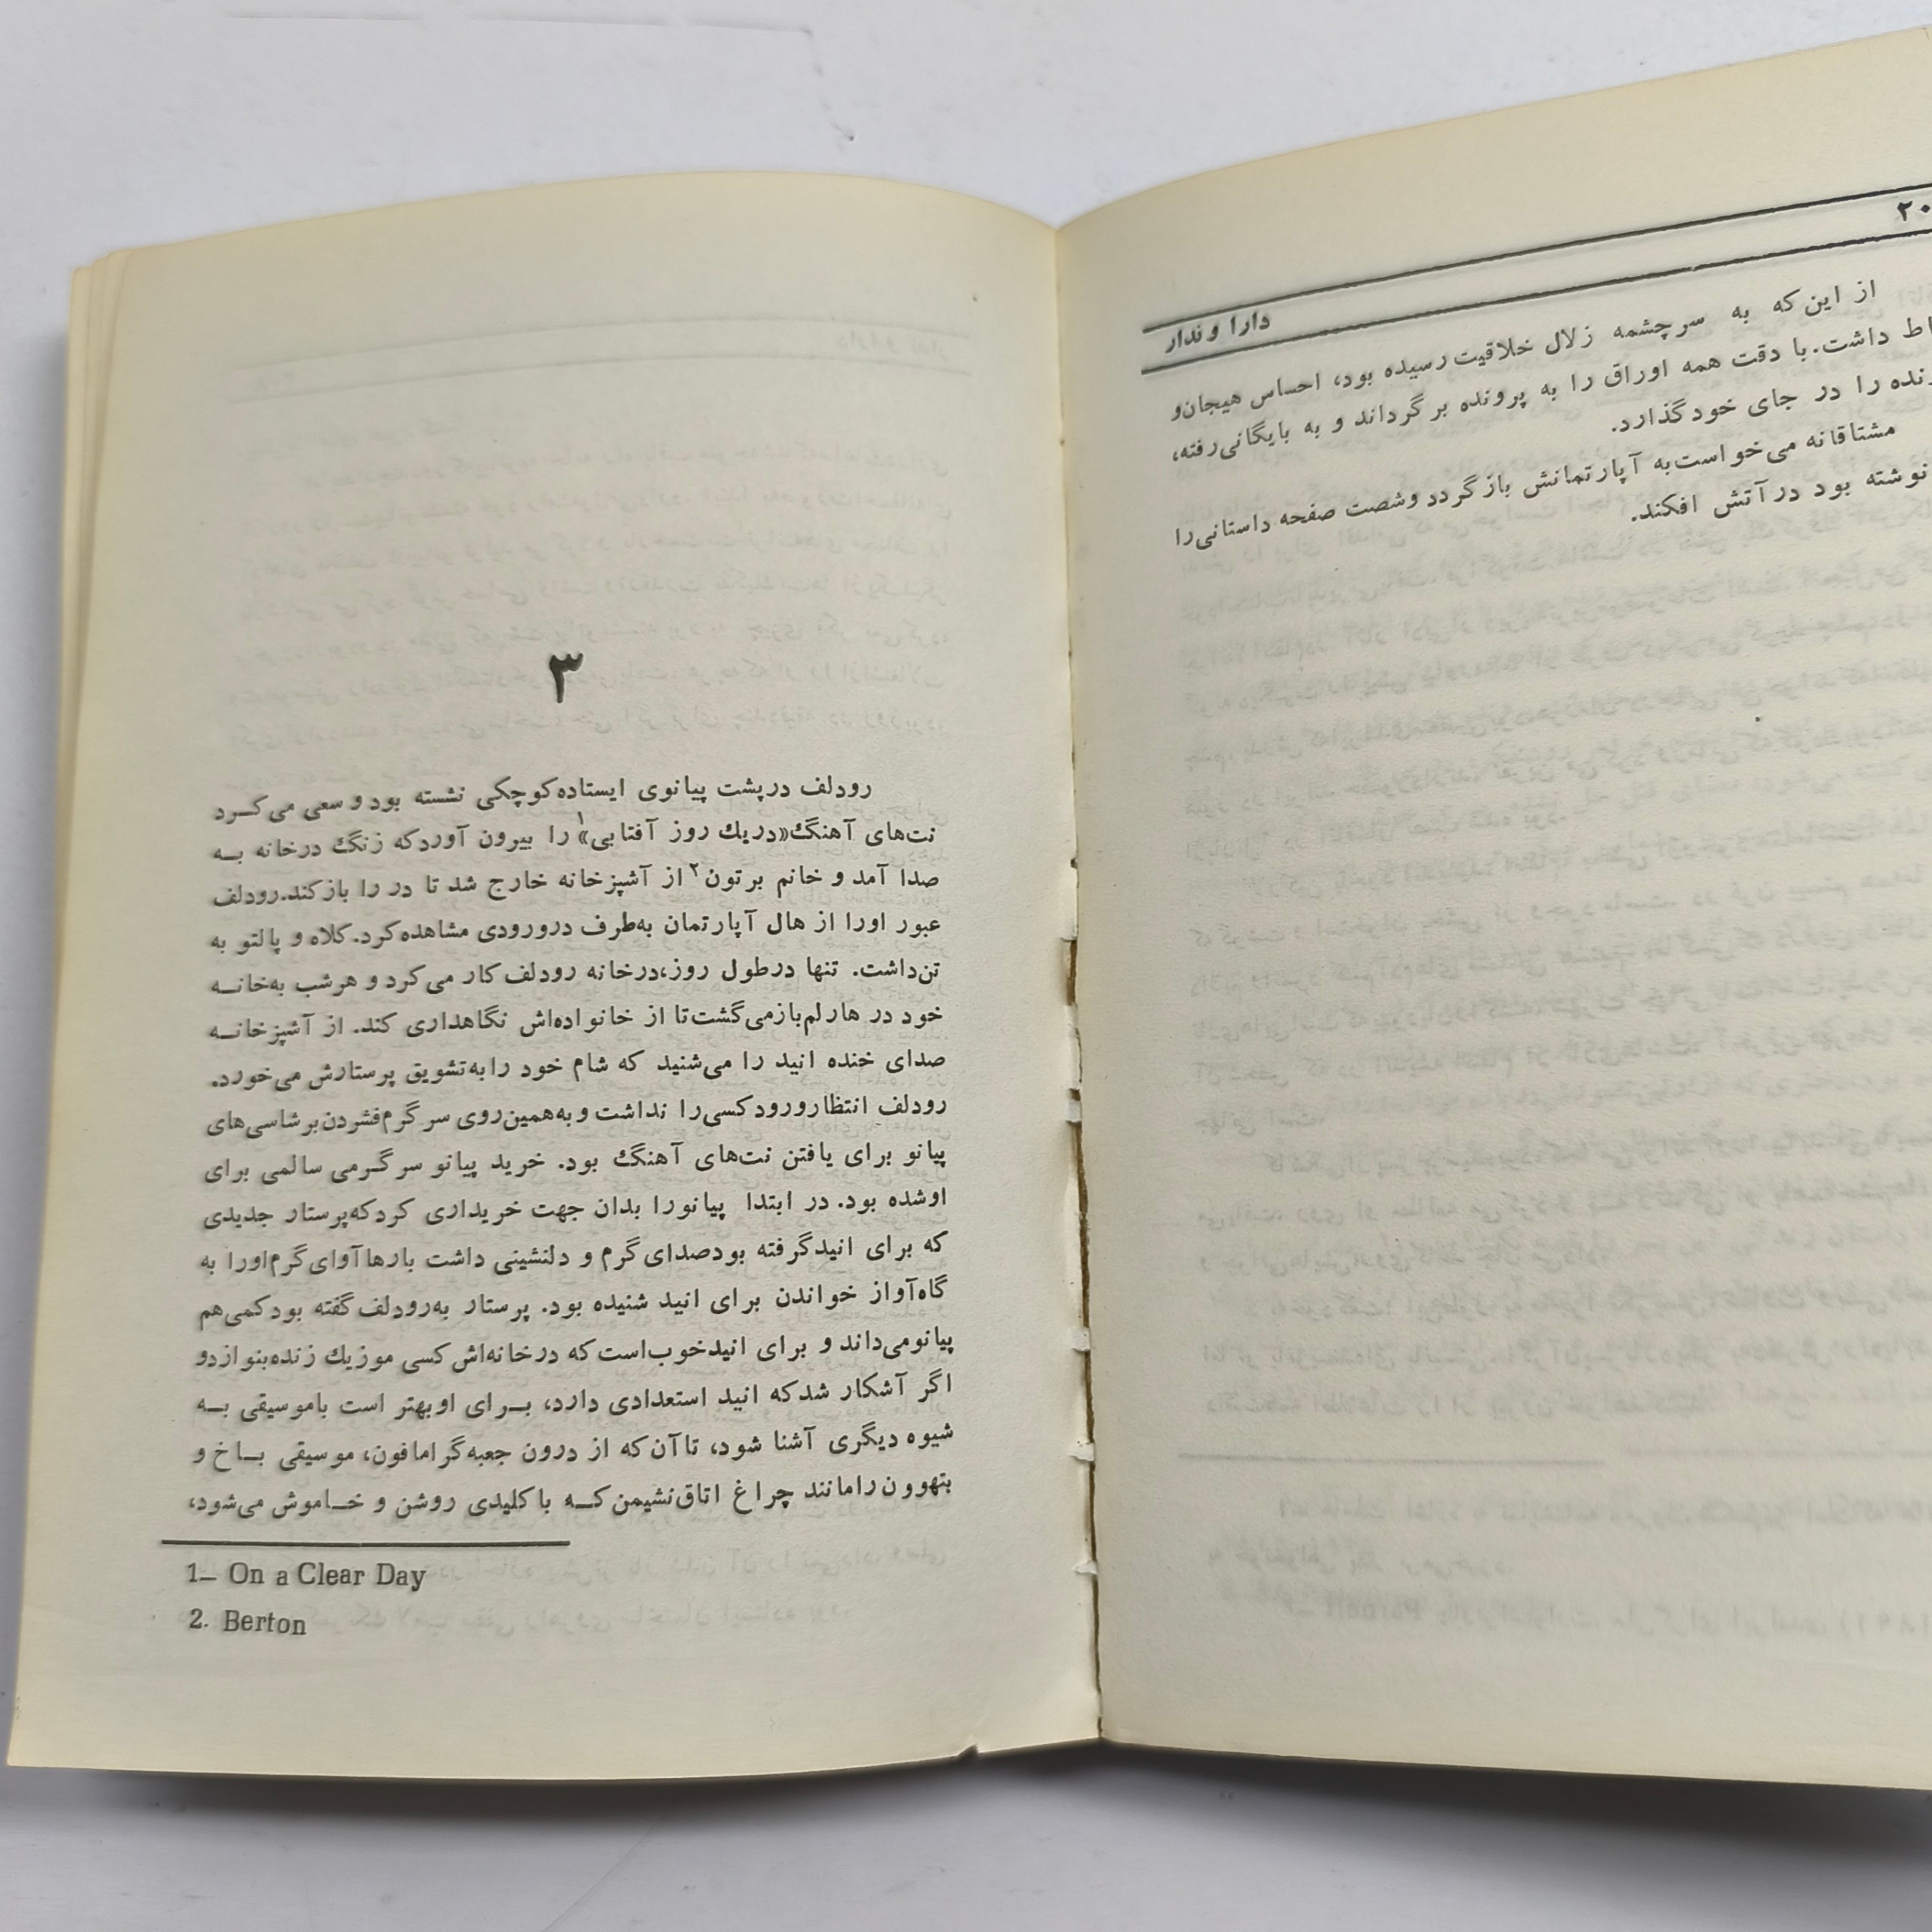 ۲۰
دارا و ندار
از این‌که به سرچشمه زلال خلاقیت رسیده بود، احساس هیجان‌و
داشت. با دقت همه اوراق را به پرونده برگرداند و به بایگانی‌رفته،
را در جای خودگذارد.
مشتاقانه می‌خواست‌به آپارتمانش بازگردد وشصت صفحه داستانی‌را
نوشته بود درآتش افکند.
۳
رودلف درپشت پیانوی ایستاده‌کوچکی نشسته بود و سعی می‌کـرد
نت‌های آهنگ«دریك روز آفتابی»۱ را بیرون آوردکه زنگ درخانه بـه
صدا آمد و خانم برتون۲ از آشپزخانه خارج شد تا در را بازکند.رودلف
عبور اورا از هال آپارتمان به‌طرف درورودی مشاهده‌کرد.کلاه و پالتو به
تن‌داشت. تنها درطول روز،درخانه رودلف کار می‌کرد و هرشب به‌خانـه
خود در هارلم‌بازمی‌گشت‌تا از خانواده‌اش نگاهداری کند. از آشپزخانـه
صدای خنده انید را می‌شنید که شام خود رابه‌تشویق پرستارش می‌خورد.
رودلف انتظارورودکسی‌را نداشت وبه‌همین‌روی سرگرم‌فشردن‌برشاسی‌های
پیانو برای یافتن نت‌های آهنگ بود. خرید پیانو سرگـرمی سالمی برای
اوشده بود. در ابتدا پیانورا بدان جهت خریداری کردکه‌پرستار جدیدی
که برای انیدگرفته بودصدای‌گرم و دلنشینی داشت بارهاآوای‌گرم‌اورا به
گاه‌آواز خواندن برای انید شنیده بود. پرستار به‌رودلف‌گفته بودکمی‌هم
پیانومی‌داند و برای انیدخوب‌است که درخانه‌اش‌کسی موزیك زنده‌بنوازدو
اگر آشکار شدکه انید استعدادی دارد، بـرای اوبهتر است باموسیقی بـه
شیوه دیگری آشنا شود، تاآن‌که از درون جعبه‌گرامافون، موسیقی بـاخ و
بتهوون‌رامانند چراغ اتاق‌نشیمن‌کـه باکلیدی روشن و خـاموش می‌شود،
1– On a Clear Day
2. Berton